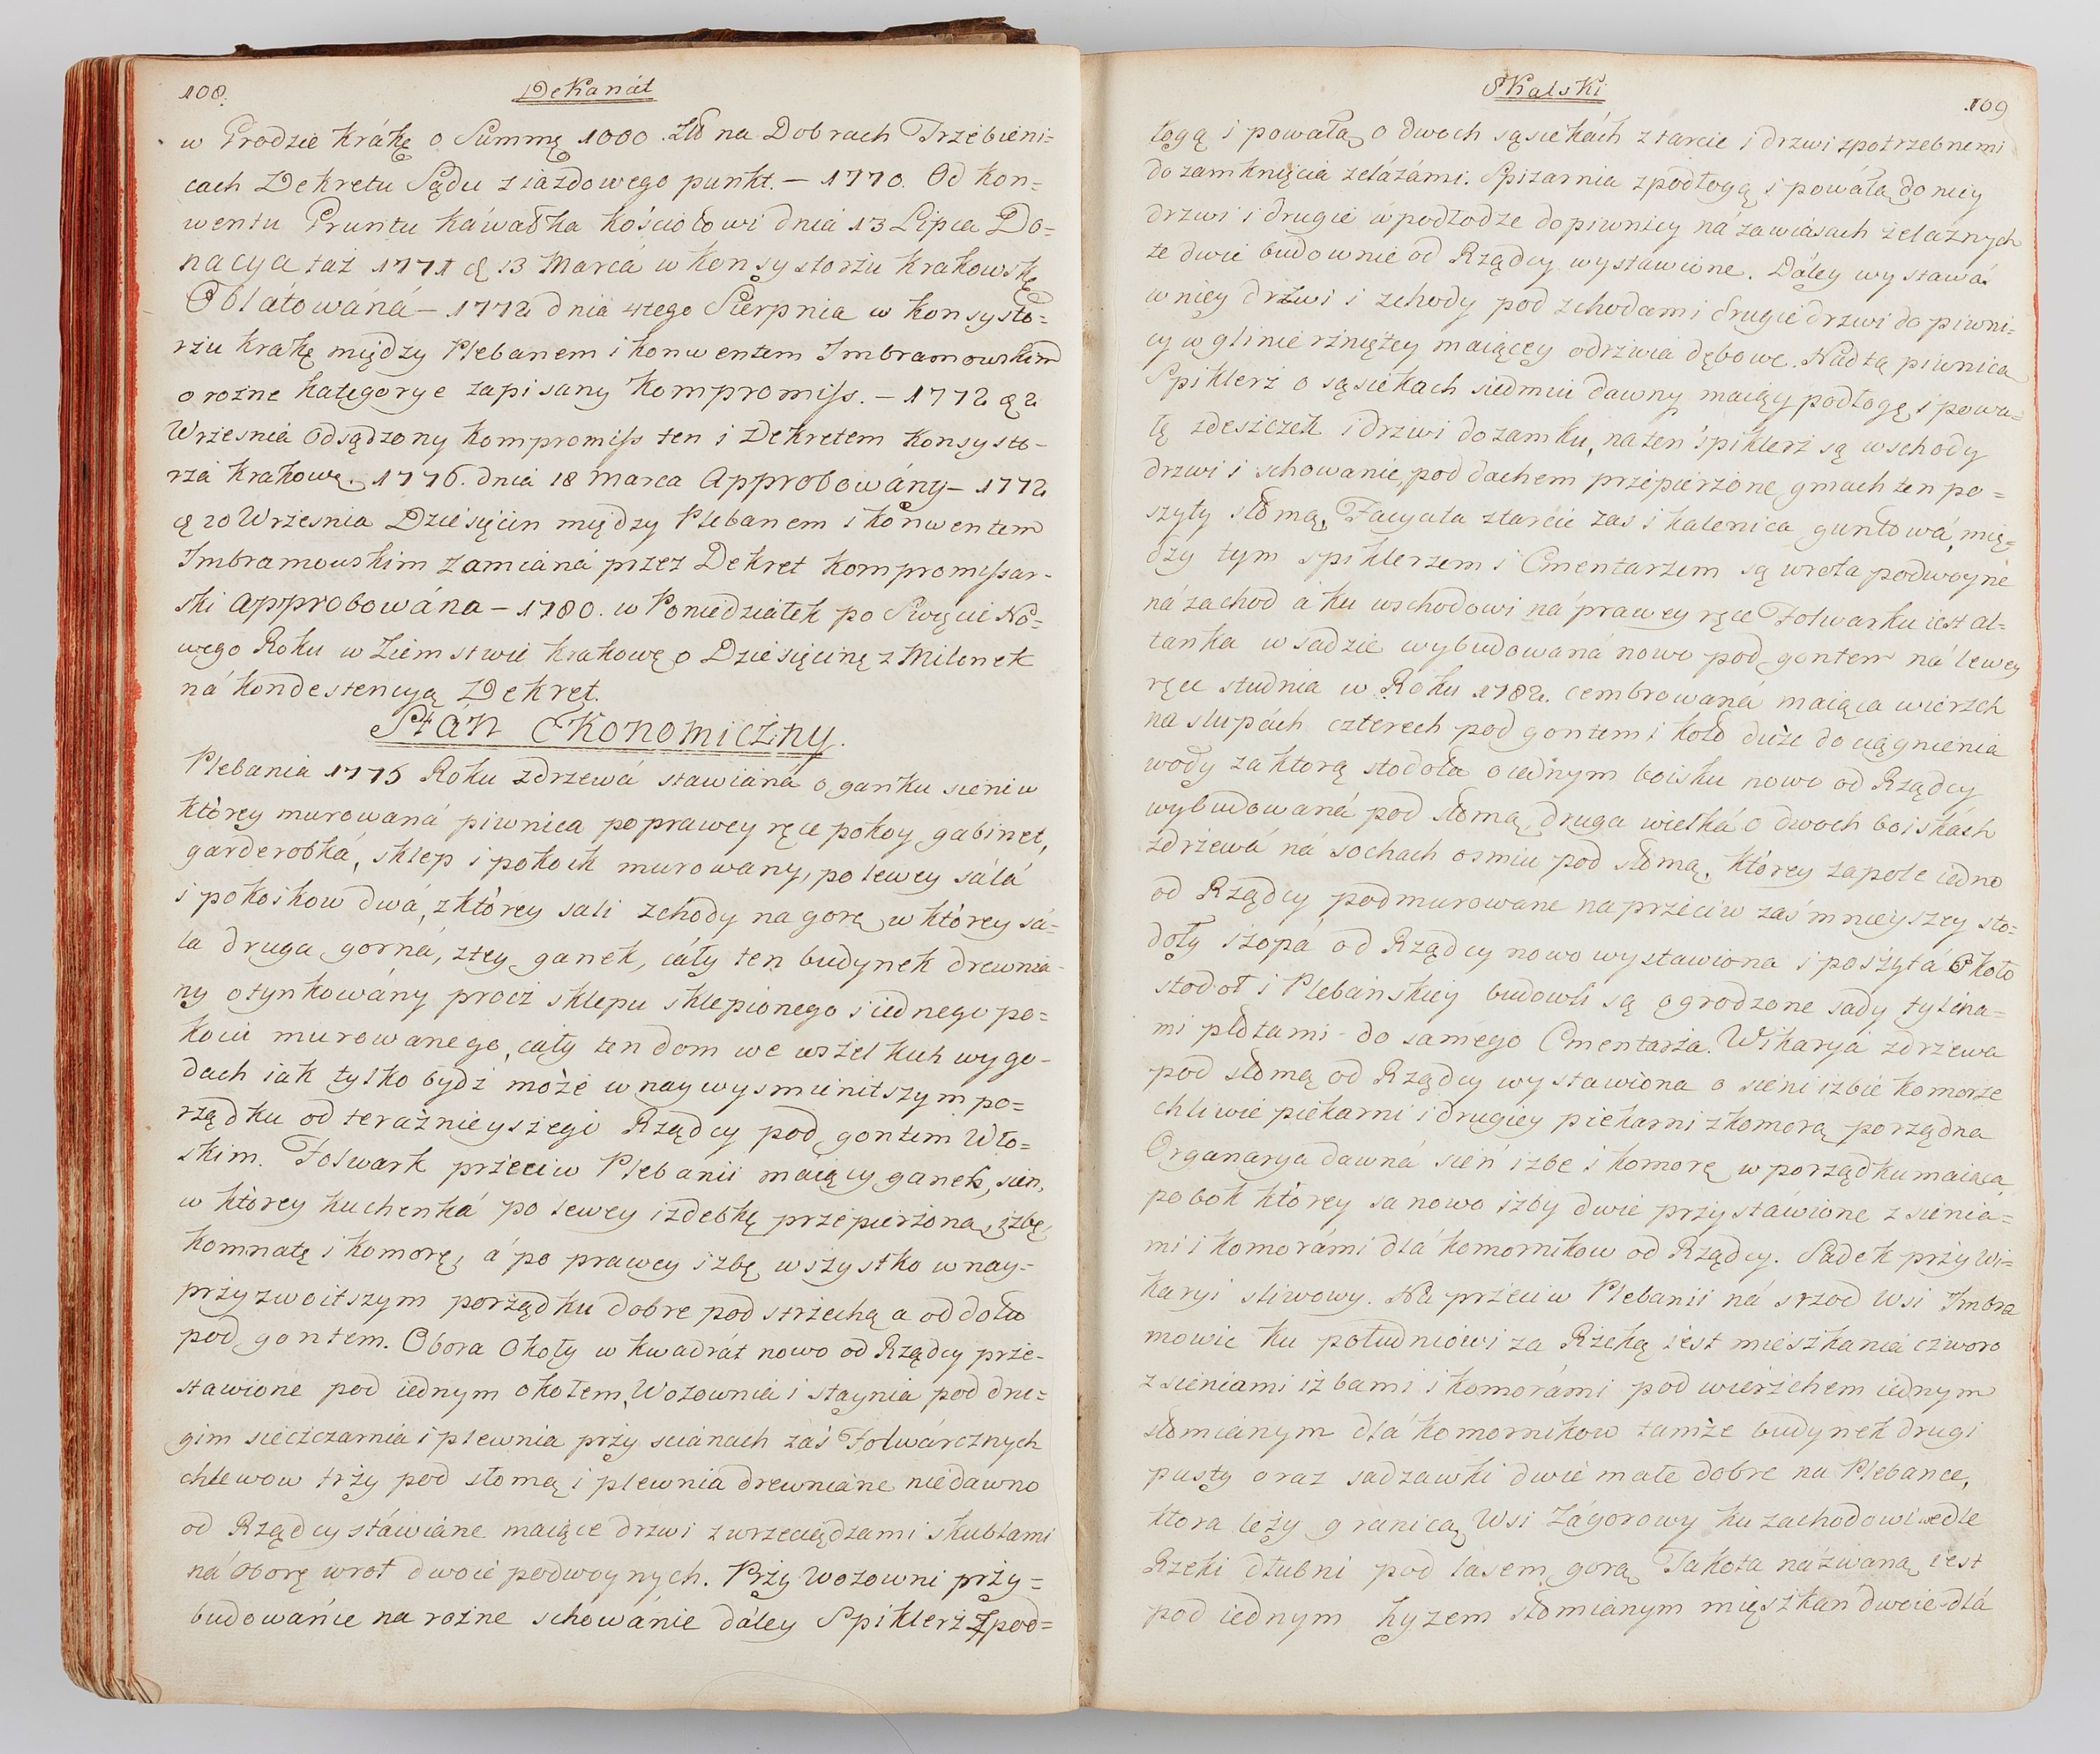 108.
Dekanát
w Grodzie krákę o Summę 1000 Zło na Dobrach Trzebieni=
cach Dekretu Sądu ziazdowego punkt. — 1770. Od kon=
wentu Gruntu káwałka kościołowi dnia 13 Lipca Do=
nacya taż 1771 ą 13 Marca w konsystorżu krakowskę
Oblátowáná — 1772 dnia 4tego Sierpnia w konsysto=
rżu krakę między Plebanem i konwentem Imbramowskim
o rożne kategorye zapisany kompromiss. — 1772 ą 2
Wrzesnia Odsądzony kompromiss ten i Dekretem konsysto-
rza krakowę. 1776. dnia 18 Marca Approbowány — 1772
ą 20 Wrzesnia Dziesięcin między Plebanem i konwentem
Imbramowskim zamianá przez Dekret kompromissar-
ski Approbowána — 1780. w Poniedziałek po Swięcie No=
wego Roku w Ziemstwie krakowę o Dziesięcinę z Milonek
ná kondestencyą Dekret.
Stán Ekonomiczny.
Plebania 1775 Roku zdrzewá stawiana o ganku sieni w
którey murowaná piwnica po prawey ręce pokoy, gabinet,
garderobká, sklep i pokoik murowany, po lewey sálá
i pokoikow dwá, z którey sali zchody na gorę w którey sá=
la druga gorná, z tey ganek, cáły ten budynek drewnia-
ny otynkowány procż sklepu sklepionego i iednego po=
koiu murowanego, cały ten dom we wszelkich wygo-
dach iak tylko bydż może w naywysmienitszym po=
rządku od teraźnieyszego Rządcy pod gontem Wło=
skim. Folwark przeciw Plebanii maiący ganek, sien,
w którey kuchenká po lewey izdebkę przepierżoną, izbę,
komnatę i komorę, á po prawey izbę wszystko w nay-
przyzwoitszym porządku dobre pod strzechą a od dołu
pod gontem. Obora Okoły w kwadrát nowo od Rządcy prze-
stawione pod iednym okołem, Wozownia i staynia pod dru=
gim sieczczarnia i plewnia przy scianach zaś Folwárcznych
chlewow trzy pod słomą i plewnia drewniane niedawno
od Rządcy stáwiane maiące drzwi z wrzeciądzami skublami
ná oborę wrot dwoie podwoynych. Przy Wozowni przy=
budowánie na rożne schowánie dáley Spiklerż z pod=
Skalski
109
łogą i powałą o dwoch sąsiekách z tarcie i drzwi zpotrzebnemi
do zamknięcia zelázámi. Spizarnia z podłogą i powáłą do niey
drzwi i drugie w podłodze do piwnicy ná zawiásach żelaznych
te dwie budownie od Rządcy wystáwione. Dáley wystawá
w niey drzwi i zchody pod zchodami drugie drzwi do piwni=
cy w glinie rzniętey maiącey odrzwia dębowe. Nad tą piwnicą
Spiklerż o sąsiekach siedmiu dawny maiący podłogę i powa=
łę zdeszczek i drzwi do zamku, na ten spiklerż są wschody
drzwi i schowanie, pod dachem przepierżone gmach ten po=
szyty słomą, Facyata ztarcie zas i kalenica guntowá, mię=
dzy tym spiklerzem i Cmentarzem są wrota podwoyne
ná zachod á ku wschodowi ná prawey ręce Folwarku iest al=
tanka w sadzie wybudowaná nowo pod gontem ná lewey
ręce studnia w Roku 1782. cembrowaná maiąca wierzch
na słupách czterech pod gontem i koło duże do ciągnienia
wody za ktorą stodoła o iednym boisku nowo od Rządcy
wybudowaná pod słomą, druga wielká o dwoch boiskách
zdrzewá ná sochach osmiu pod słomą, którey zapole iedno
od Rządcy podmurowane naprzeciw zaś mnieyszey sto=
doły szopá od Rządcy nowo wystawiona i poszytá Około
stodoł i Plebańskiey budowli są ogrodzone sady tylina=
mi płotami do samego Cmentarża. Wikarya zdrzewa
pod słomą od Rządcy wystawiona o sieni izbie komorze
chliwie piekarni i drugiey piekarni z komorą porządna
Organarya dawná sień izbę i komorę w porządku maiąca
pobok którey są nowo izby dwie przystáwione z sienia=
mi i komorámi dlá komornikow od Rządcy. Sadek przy Wi=
karyi sliwowy. Na przeciw Plebanii ná srzod Wsi Imbra
mowic ku południowi za Rzeką iest mieszkania czworo
z sieniami izbami i komorámi pod wierzchem iednym
słomianym dlá komornikow tamże budynek drugi
pusty oraz sadzawki dwie małe dobre na Plebance,
ktora leży granicą Wsi Zágorowy ku zachodowi wedle
Rzeki dłubni pod lasem gorą Jakota názwaną iest
pod iednym hyzem słomianym mięszkań dwoie dlá